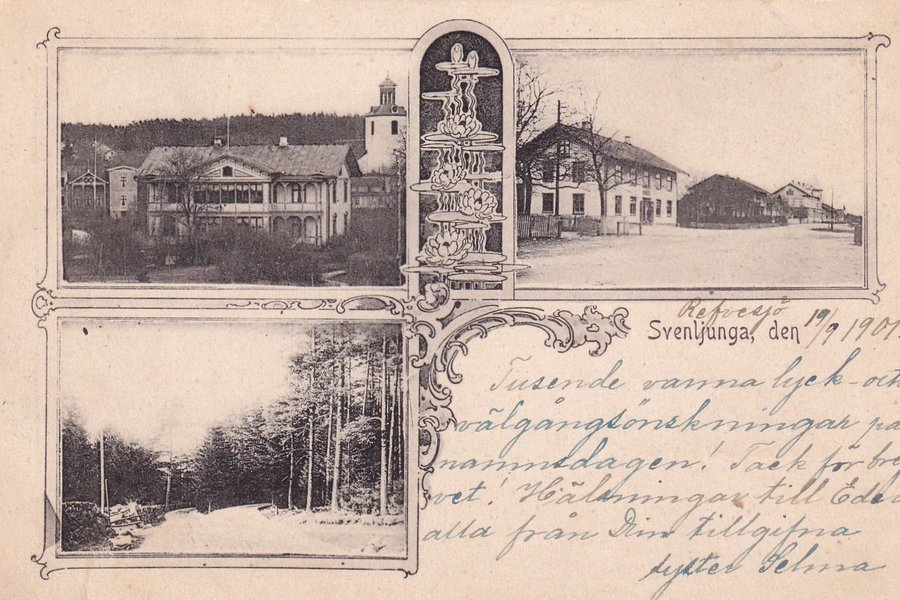 Refvesjö
Svenljunga, den 19/9 1901.
Tusende varma lyck- och
välgångsönskningar på
namnsdagen! Tack för bre
vet! Hälsningar till Eder
alla från Din tillgifna
syster Selma